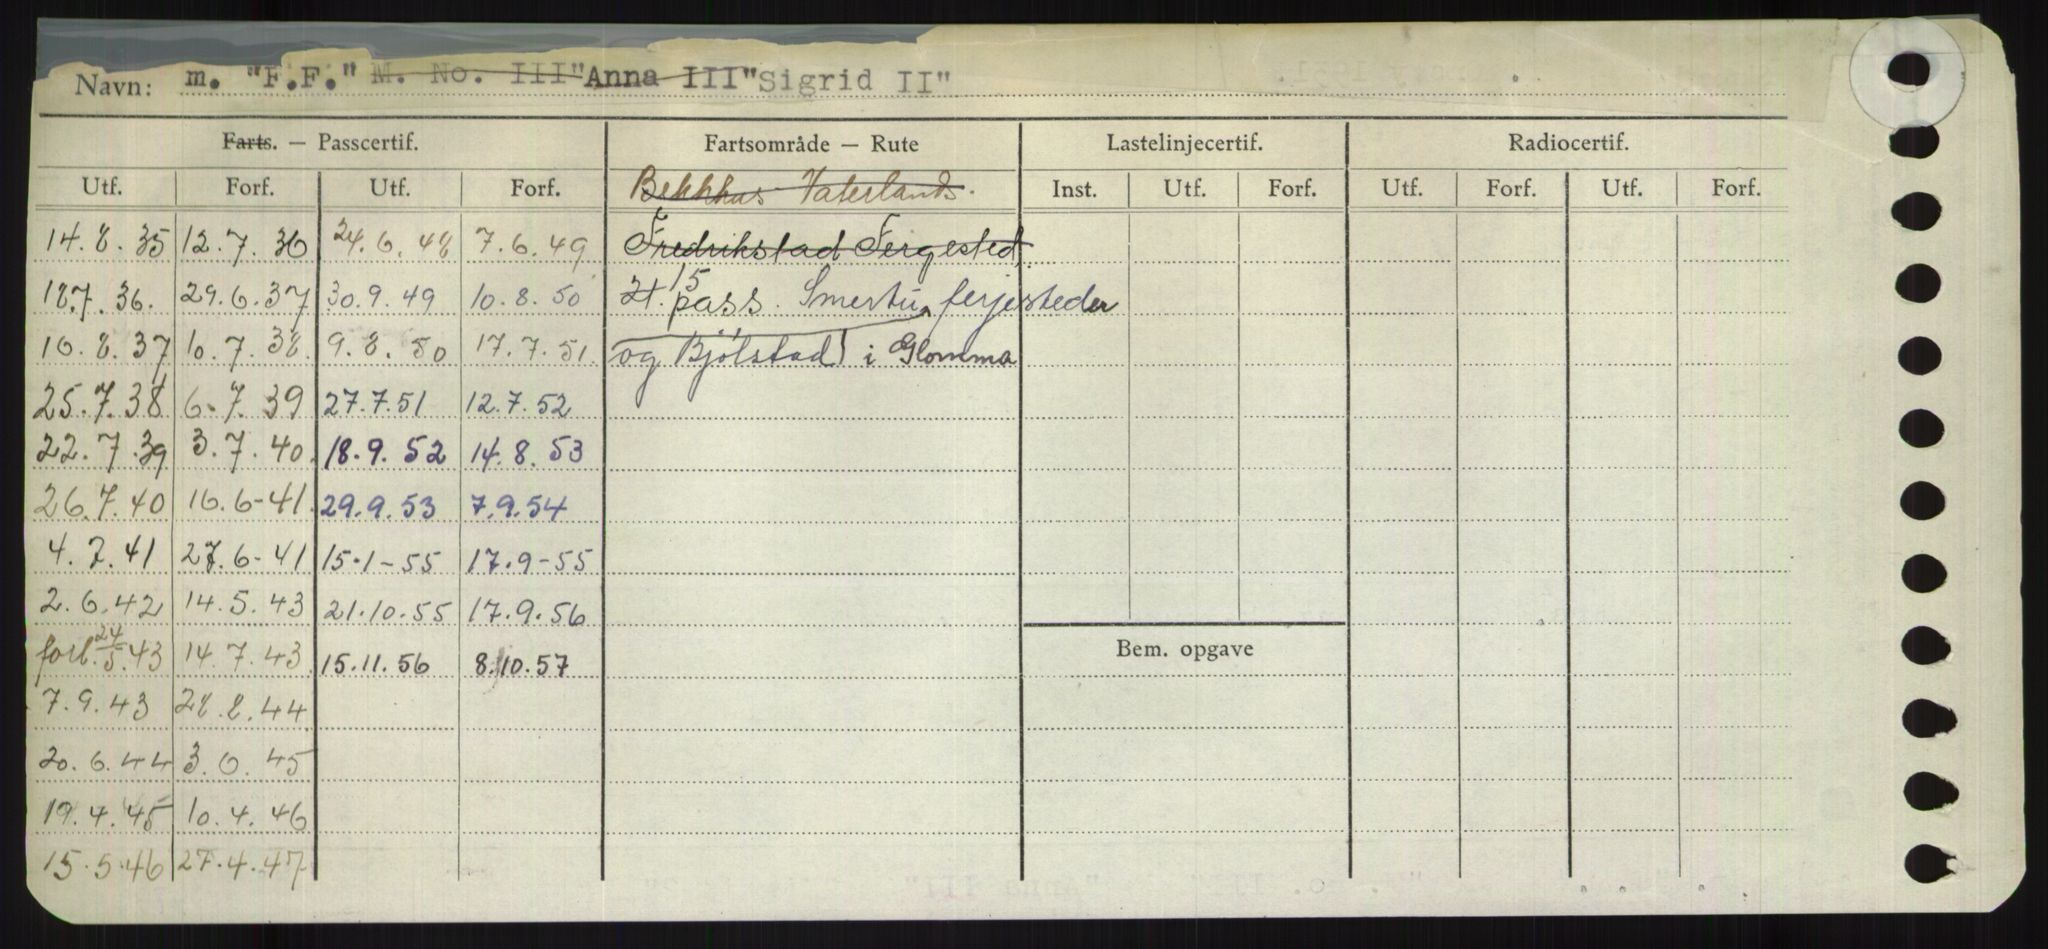 Navn: m. "F.F." M. No. III "Anna III" "Sigrid II"
Farts. — Passcertif. Fartsområde — Rute Lastelinjecertif. Radiocertif.
Utf. Forf. Utf. Forf. Bekkhus Vaterlands. Inst. Utf. Forf. Utf. Forf. Utf. Forf.
14.8.35 12.7.36 24.6.48 7.6.49 Fredrikstad Fergested
18.7.36. 29.6.37 30.9.49 10.8.50 15 pass. ferjesteder
10.8.37 10.7.38. 9.8.50 17.7.51. og Bjølstad i Glomma
25.7.38 6.7.39 27.7.51 12.7.52
22.7.39 3.7.40. 18.9.52 14.8.53
26.7.40 16.6-41. 29.9.53 7.9.54
4.7.41 27.6-41 15.1-55 17.9-55
2.6.42 14.5.43 21.10.55 17.9.56
forl. 24/5.43 14.7.43. 15.11.56 8.10.57
Bem. opgave
7.9.43 28.8.44
20.6.44 3.6.45
19.4.45 10.4.46
15.5.46 27.4.47